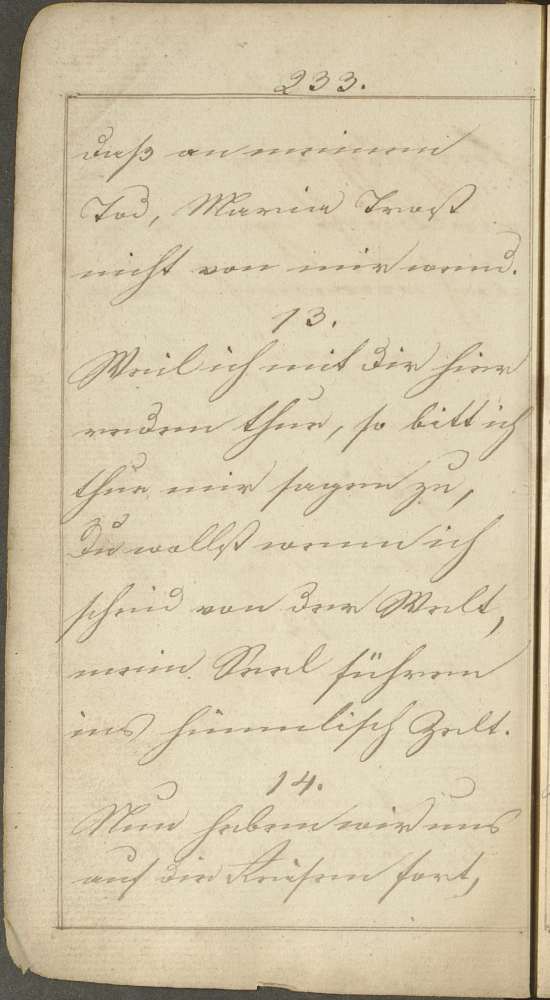 233.
daß an meinem
Tod, Maria Trost
nicht von mir wend.
13.
Weil ich mit dir hier
reden thue, so bitt ich
thue mir sagen zu,
Du wollst wenn ich
scheid von der Welt,
meine Seel führen
ins himmlisch Zelt.
14.
Nun heben wir uns
auf die Reisen fort,